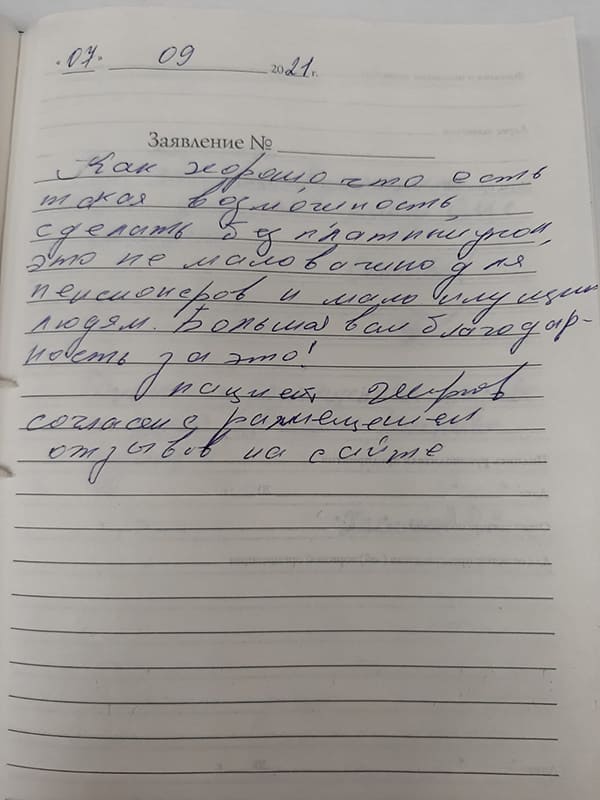 "07" 09 2021 г.
Заявление №
Как хорошо что есть
такая возможность
сделать бесплатный укол,
это не маловажно для
пенсионеров и мало имущим
людям. Большая вам благодар-
ность за это!
пациент
согласен с размещением
отзывов на сайте